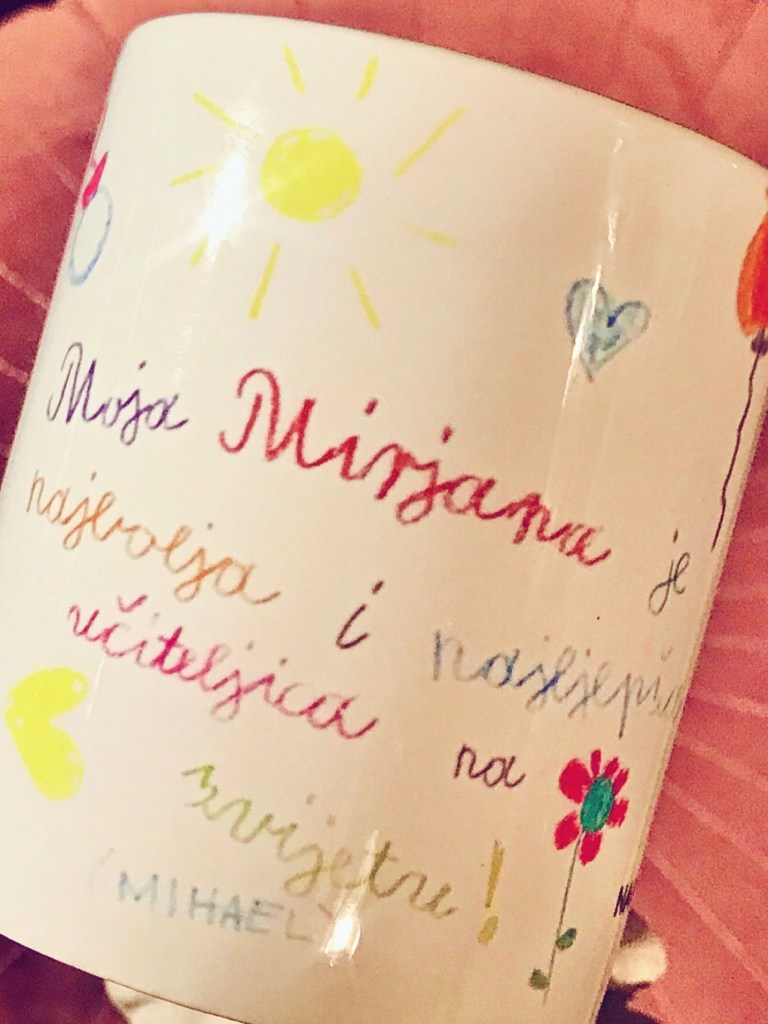 Moja Mirjana je
najbolja i najljepša
učiteljica na
svijetu!
(MIHAEL)